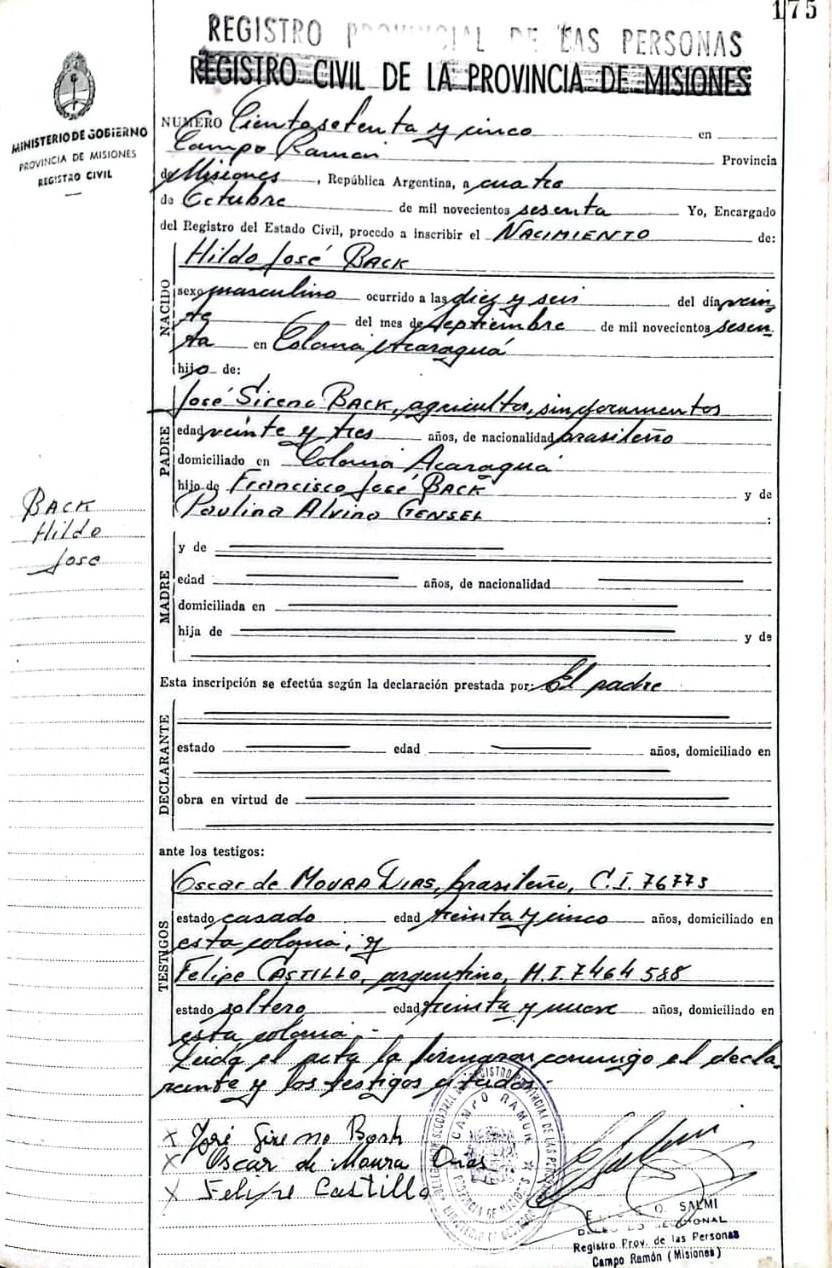 175
REGISTRO PROVINCIAL DE LAS PERSONAS
REGISTRO CIVIL DE LA PROVINCIA DE MISIONES
MINISTERIO DE GOBIERNO
PROVINCIA DE MISIONES
REGISTRO CIVIL
NUMERO Ciento setenta y cinco en
Campo Ramón Provincia
de Misiones, República Argentina, a cuatro
de Octubre de mil novecientos sesenta Yo, Encargado
del Registro del Estado Civil, procedo a inscribir el NACIMIENTO de:
NACIDO
Hildo José BACK
sexo masculino ocurrido a las diez y seis del día vein
te del mes de septiembre de mil novecientos sesen
ta en Colonia Acaraguá
hijo de:
PADRE
José Sireno BACK, agricultor, sin documentos
edad veinte y tres años, de nacionalidad brasileño
domiciliado en Colonia Acaraguá
hijo de Francisco José BACK y de
Paulina Alvina GENSEL :
BACK
Hildo
José
MADRE
y de
edad años, de nacionalidad
domiciliada en
hija de y de
Esta inscripción se efectúa según la declaración prestada por: El padre
DECLARANTE
estado edad años, domiciliado en
obra en virtud de
ante los testigos:
TESTIGOS
Oscar de MOURA DIAS, brasileño, C.I. 76773
estado casado edad treinta y cinco años, domiciliado en
esta colonia, y
Felipe CASTILLO, argentino, M.I. 7464588
estado soltero edad treinta y nueve años, domiciliado en
esta colonia.-
Leida el acta la firmaron conmigo el decla-
rante y los testigos citados.-
X José Sireno Back
X Oscar de Moura Dias
X Felipe Castillo
CAMPO RAMON
PROVINCIA DE MISIONES
O. SALMI
Registro Prov. de las Personas
Campo Ramón (Misiones)